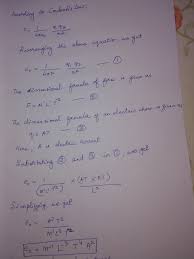 According to Coulomb's law,
F = 1/4πε₀ q₁q₂/r²
Rearranging the above equation we get
ε₀ = 1/4πF q₁q₂/r² — ①
The dimensional formula of force is given as
F = M¹L¹T⁻² — ②
The dimensional formula of an electric charge is given as
q = AT — ③
Here, A is electric current
Substituting ② and ③ in ①, we get
ε₀ = 1/(MLT⁻²) × (AT × AT)/L²
Simplifying we get
ε₀ = A²T²/M¹L³T⁻²
ε₀ = M⁻¹L⁻³T⁴A²